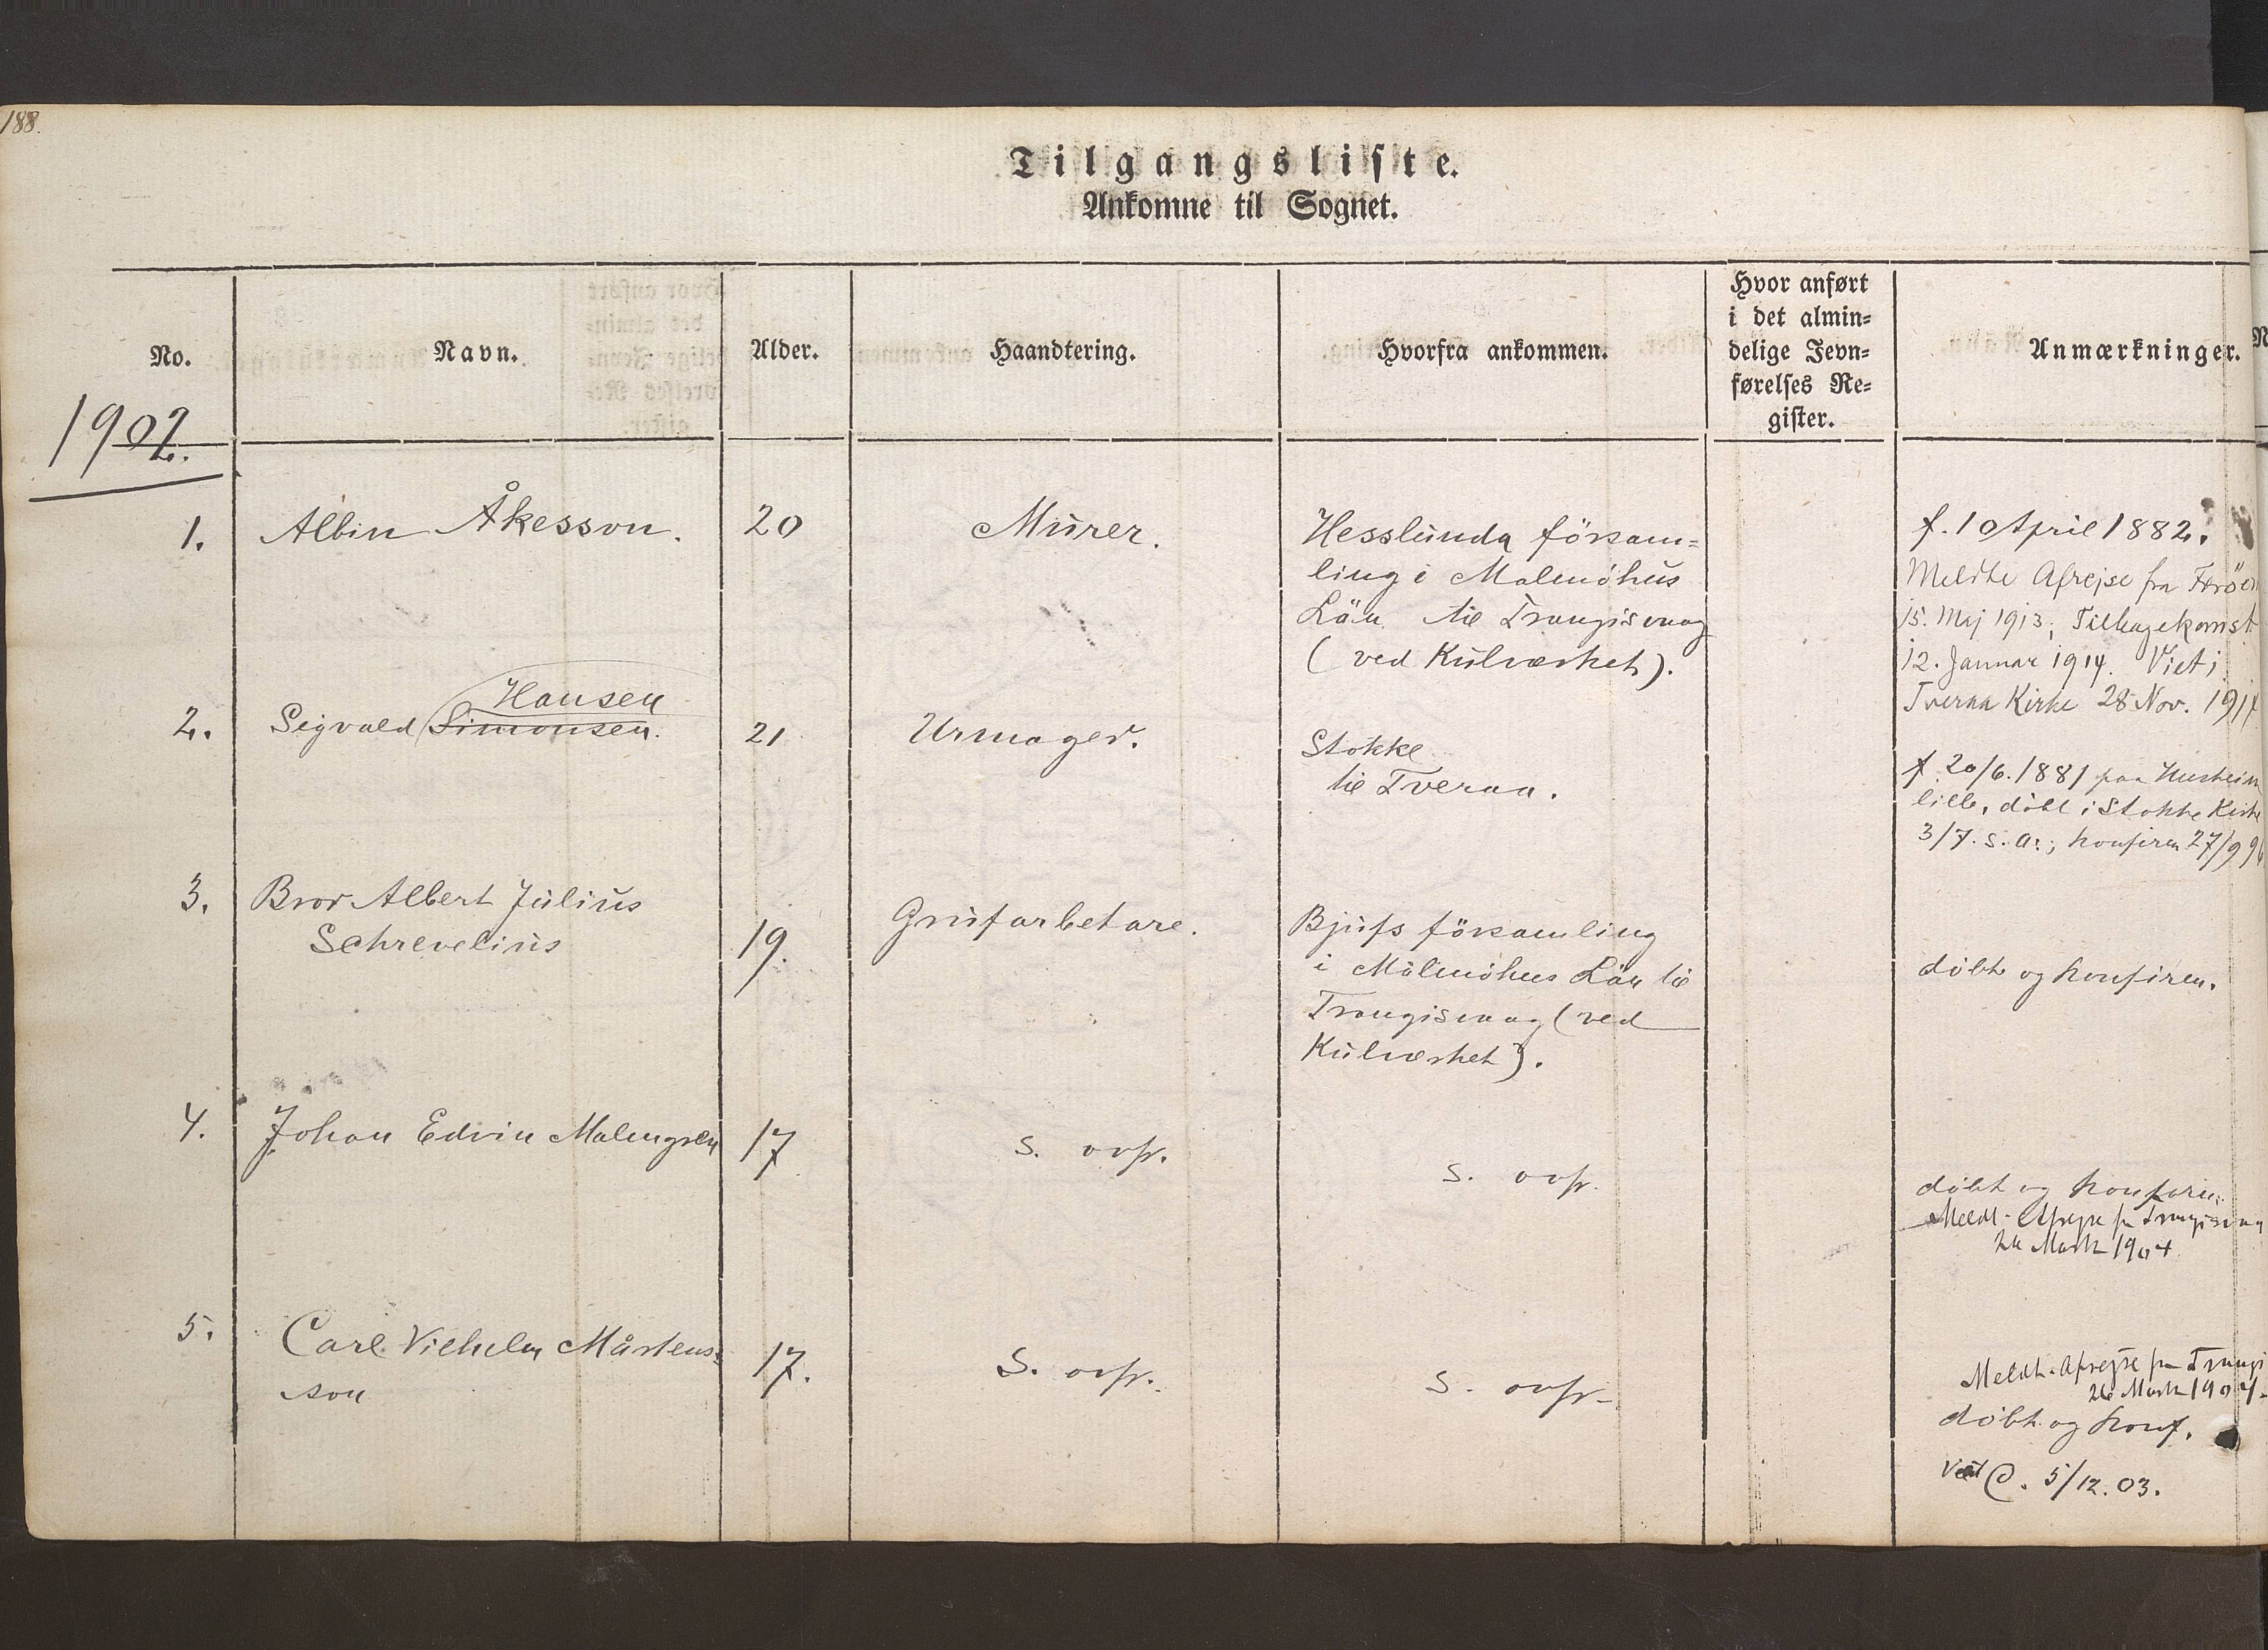 188.
Tilgangsliste.
Ankomne til Sognet.
No.
Navn.
Alder.
Haandtering.
Hvorfra ankommen.
Hvor anført
i det almin=
delige Jevn=
førelses Re=
gister.
Anmærkninger.
1902.
1.
Albin Åkesson.
20
Murer.
Hesslunda försam=
ling i Malmöhus
Län til Trangisvaag
(ved Kulværket).
f. 10 April 1882.
Meldte Afrejse fra Færöen
15. Maj 1913; Tilbagekomst
12. Januar 1914. Viet i
Tveraa Kirke 28 Nov. 191
2.
Hansen
Sigvald Simonsen.
21
Urmager.
Stokke
til Tveraa.
f. 20/6. 1881 paa
lille, döbt i Stokke Kirke
3/7. s. a.; konfirm 27/9 96
3.
Bror Albert Julius
Schrevelius
19.
Grufarbetare.
Bjufs församling
i Malmöhus Län til
Trangisvaag (ved
Kulværket).
döbt og konfirm.
4.
Johan Edvin Malmgren
17
s. ovfr.
s. ovfr.
döbt og konfirm.
Meldt Afrejse fr Trangisvaag
Marts 1904
5.
Carl Vilhelm Mårtens=
son
17.
S. ovfr.
S. ovfr.
Meldt. Afrejse fra Trangi
26 Marts 1904.
döbt og konf.
C. 5/12. 03.